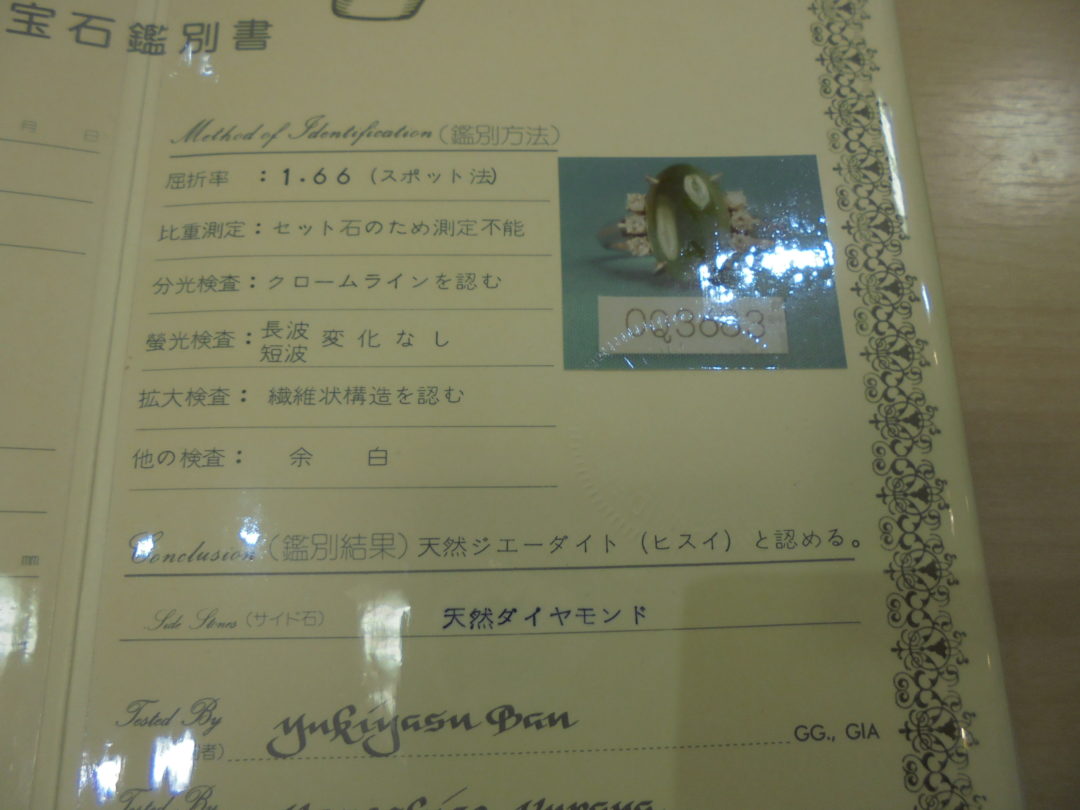 宝石鑑別書
月 日
Method of Identification (鑑別方法)
屈折率 : 1.66 (スポット法)
比重測定 : セット石のため測定不能
分光検査 : クロームラインを認む
螢光検査 : 長波 短波 変化なし
拡大検査 : 繊維状構造を認む
他の検査 : 余 白
003683
mm
Conclusion (鑑別結果) 天然ジエーダイト (ヒスイ) と認める。
Side Stones (サイド石) 天然ダイヤモンド
Tested By Yukiyasu Ban GG., GIA
者)
Tested By